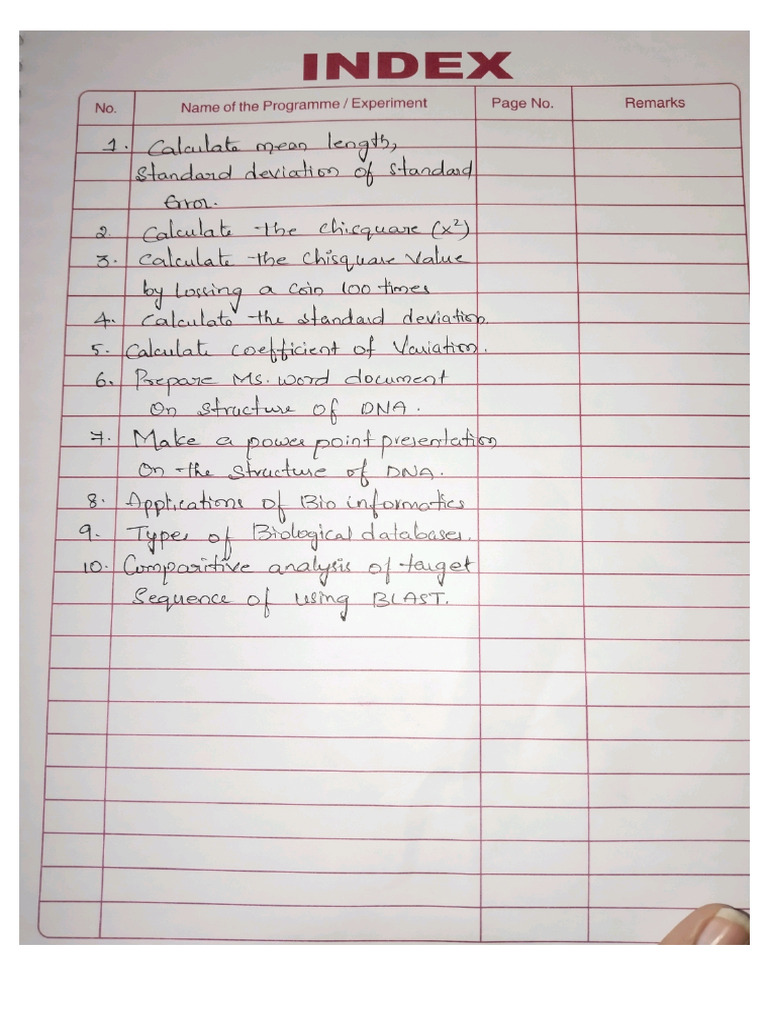 INDEX
No. Name of the Programme / Experiment Page No. Remarks
1. Calculate mean length,
Standard deviation of standard
Error.
2. Calculate the chisquare (x²)
3. Calculate the chisquare value
by Lossing a coin 100 times
4. Calculate the standard deviation.
5. Calculate coefficient of Variation.
6. Prepare Ms. word document
On structure of DNA.
7. Make a power point presentation
On the structure of DNA.
8. Applications of Bio informatics
9. Types of Biological databases.
10. Comparitive analysis of target
Sequence of using BLAST.